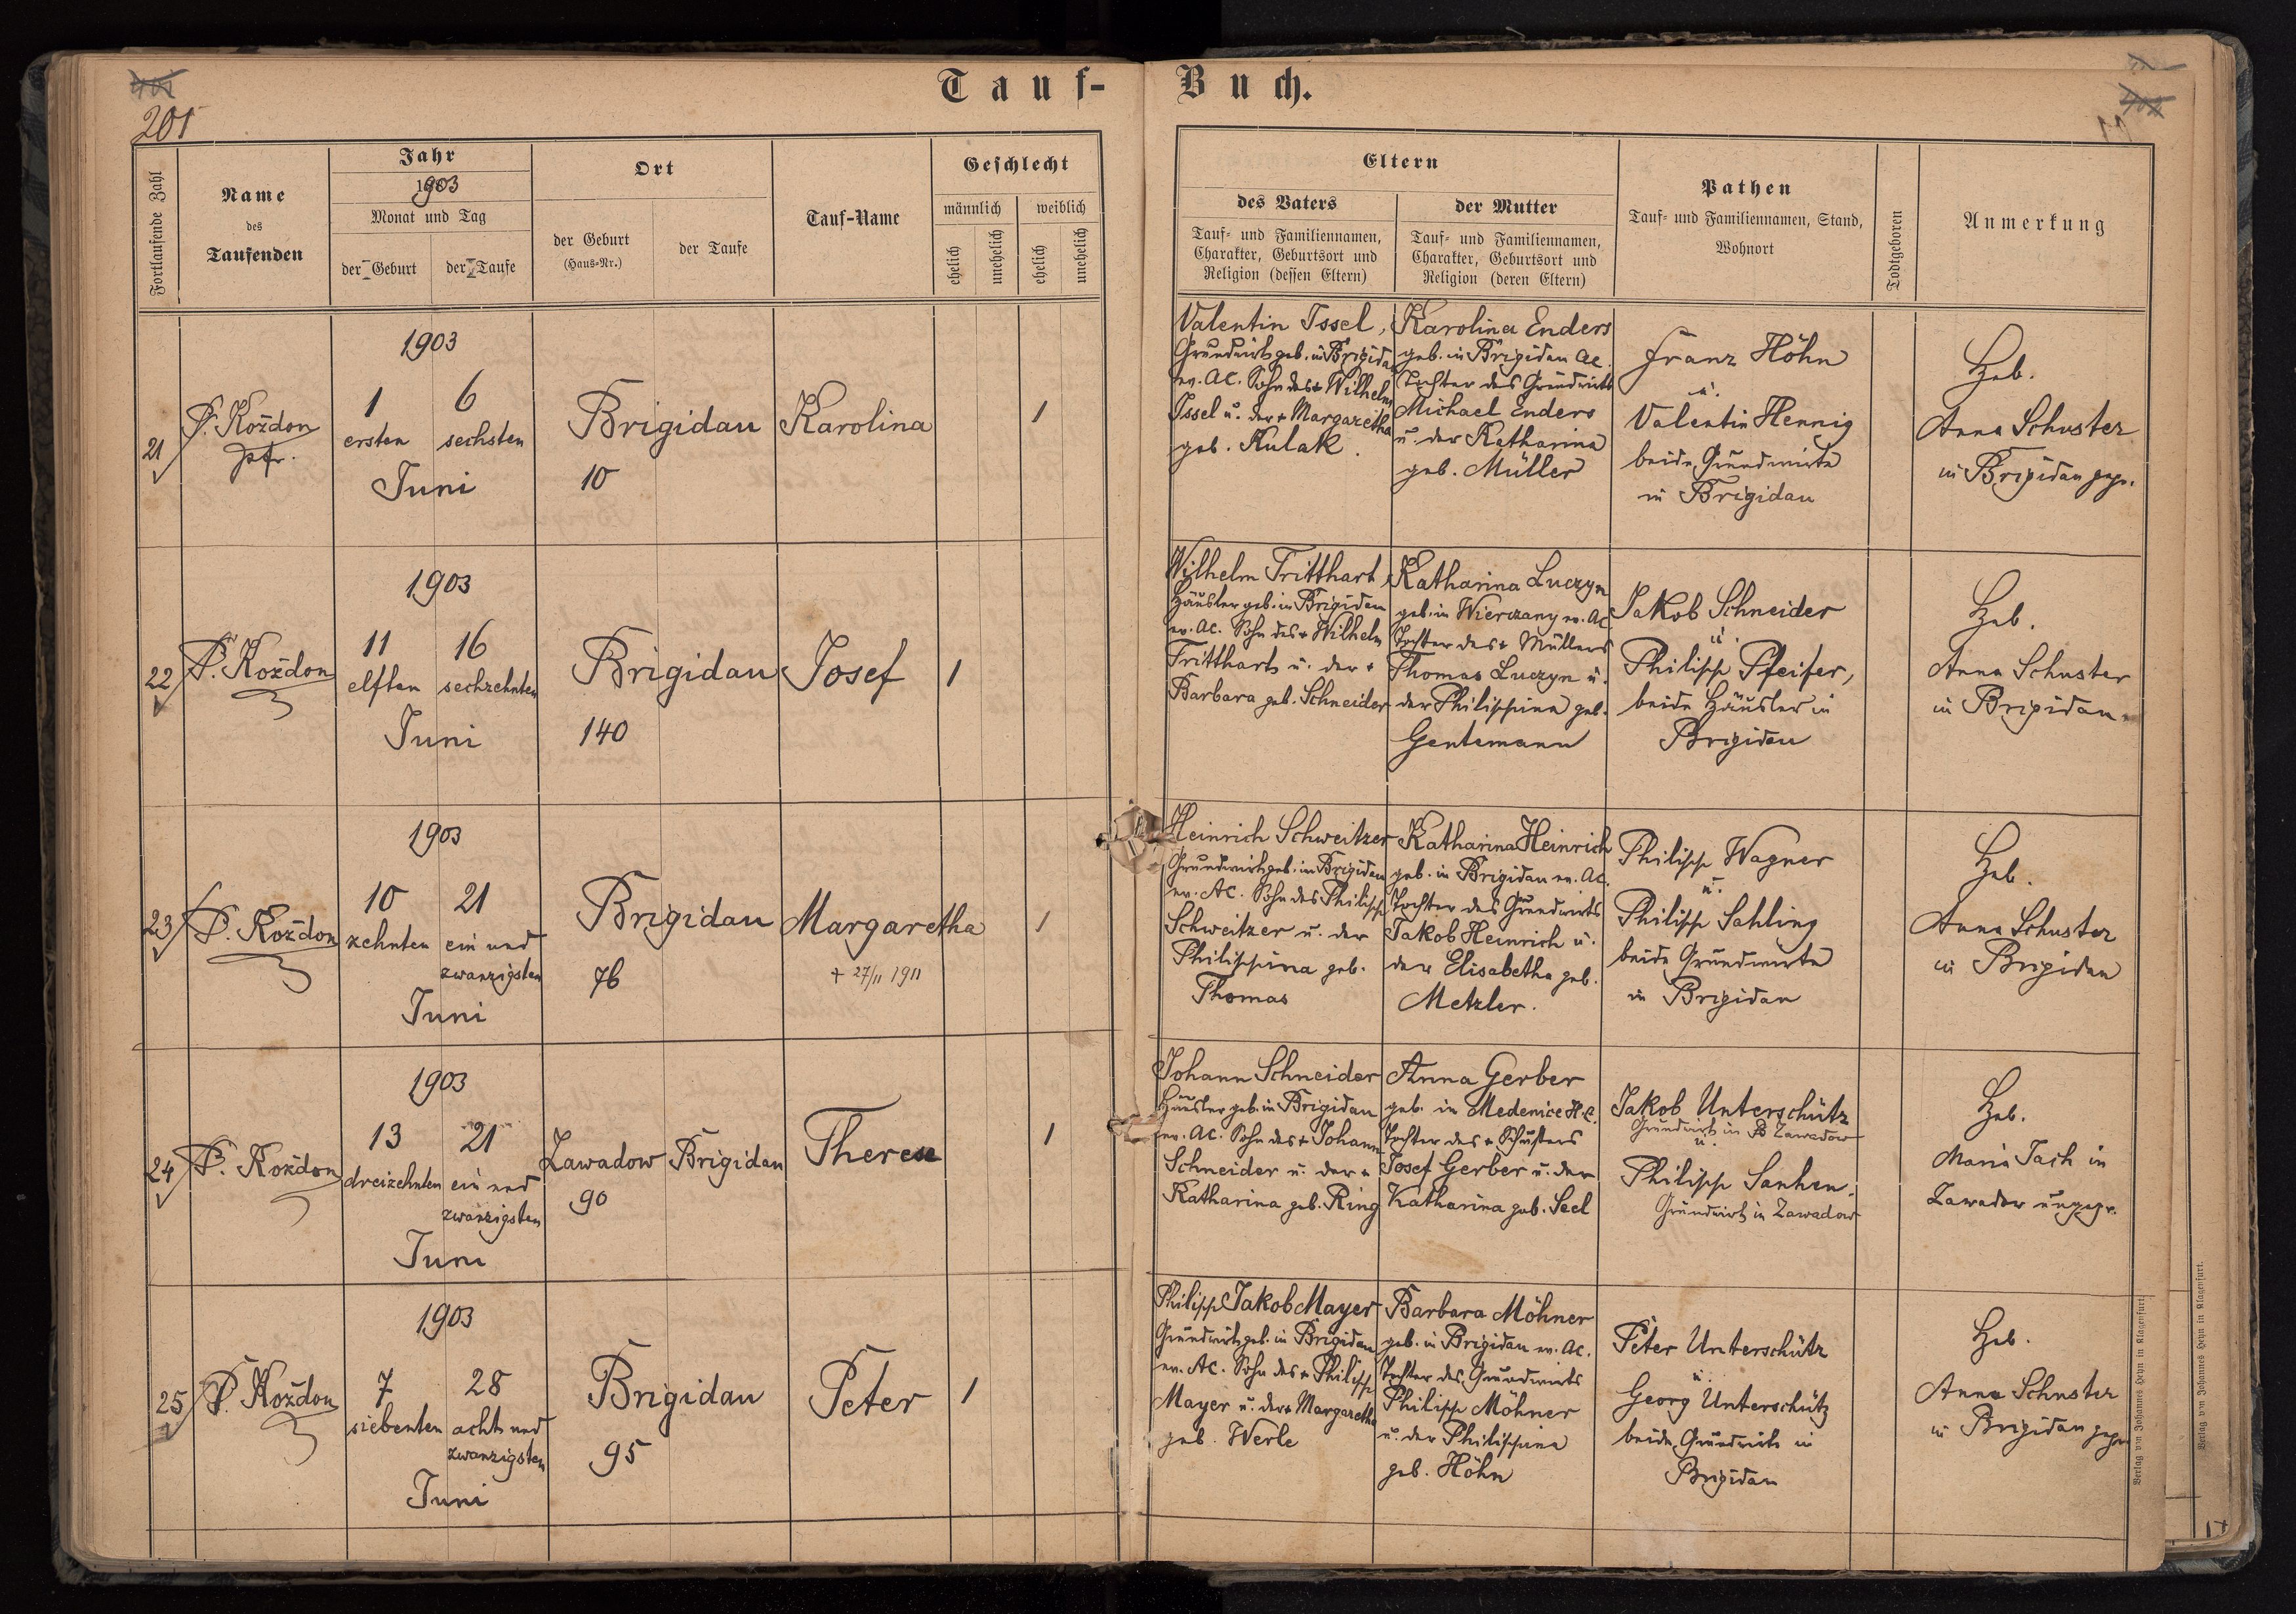 Tauf-Buch.
201
Fortlaufende Zahl
Name
des
Taufenden
Jahr
1903
Monat und Tag
der Geburt
der Taufe
Ort
der Geburt
(Haus-Nr.)
der Taufe
Tauf-Name
Geschlecht
männlich
weiblich
ehelich
unehelich
ehelich
unehelich
Eltern
des Vaters
Tauf- und Familiennamen,
Charakter, Geburtsort und
Religion (dessen Eltern)
der Mutter
Tauf- und Familiennamen,
Charakter, Geburtsort und
Religion (deren Eltern)
Pathen
Tauf- und Familiennamen, Stand,
Wohnort
Todtgeboren
Anmerkung
21
P. Koždon
pfr.
1903
1
ersten
6
sechsten
Juni
Brigidau
10
Karolina
1
Valentin Issel,
Grundwirt geb. in Brigidau
ev. AC. Sohn des + Wilhelm
Issel u. der + Margaretha
geb. Kulak.
Karolina Enders
geb. in Brigidau AC.
Tochter des Grundwirts
Michael Enders
u. der Katharina
geb. Müller
Franz Höhn
u.
Valentin Hennig
beide Grundwirte
in Brigidau
Heb.
Anna Schuster
in Brigidau gepr.
22
P. Koždon
1903
11
elften
16
sechzehnten
Juni
Brigidau
140
Josef
1
Wilhelm Tritthart,
Häusler geb. in Brigidau
ev. AC. Sohn des + Wilhelm
Tritthart u. der +
Barbara geb. Schneider
Katharina Luczyn
geb. in Wierczany ev. AC
Tochter des + Müllers
Thomas Luczyn u.
der Philippina geb.
Gentemann
Jakob Schneider
u.
Philipp Pfeifer,
beide Häusler in
Brigidau
Heb.
Anna Schuster
in Brigidau
23
P. Koždon
1903
10
zehnten
21
ein und
zwanzigsten
Juni
Brigidau
76
Margaretha
+ 27/11 1911
1
Heinrich Schweitzer
Grundwirt geb. in Brigidau
ev. AC. Sohn des Philipp
Schweitzer u. der
Philippina geb.
Thomas
Katharina Heinrich
geb. in Brigidau ev. AC.
Tochter des Grundwirts
Jakob Heinrich u.
der Elisabetha geb.
Metzler.
Philipp Wagner
u.
Philipp Sahling
beide Grundwirte
in Brigidau
Heb.
Anna Schuster
in Brigidau
24
P. Koždon
1903
13
dreizehnten
21
ein und
zwanzigsten
Juni
Zawadow
90
Brigidau
Therese
1
Johann Schneider
Häusler geb. in Brigidau
ev. AC. Sohn des + Johann
Schneider u. der +
Katharina geb. Ring
Anna Gerber
geb. in Medenice H.C.
Tochter des + Schusters
Josef Gerber u. der
Katharina geb. Seel
Jakob Unterschütz
Grundwirt in Zawadow
u.
Philipp Sanhen,
Grundwirt in Zawadow
Heb.
Maria Tach in
Zawadow ungepr.
25
P. Koždon
1903
7
siebenten
28
acht und
zwanzigsten
Juni
Brigidau
95
Peter
1
Philipp Jakob Mayer
Grundwirt geb. in Brigidau
ev. AC. Sohn des + Philipp
Mayer u. der + Margaretha
geb. Werle
Barbara Möhner
geb. in Brigidau ev. AC.
Tochter des Grundwirts
Philipp Möhner
u. der Philippina
geb. Höhn
Peter Unterschütz
u.
Georg Unterschütz
beide Grundwirte in
Brigidau
Heb
Anna Schuster
in Brigidau gepr
Verlag von Johannes Heyn in Klagenfurt.
Verlag von Johannes Heyn in Klagenfurt.